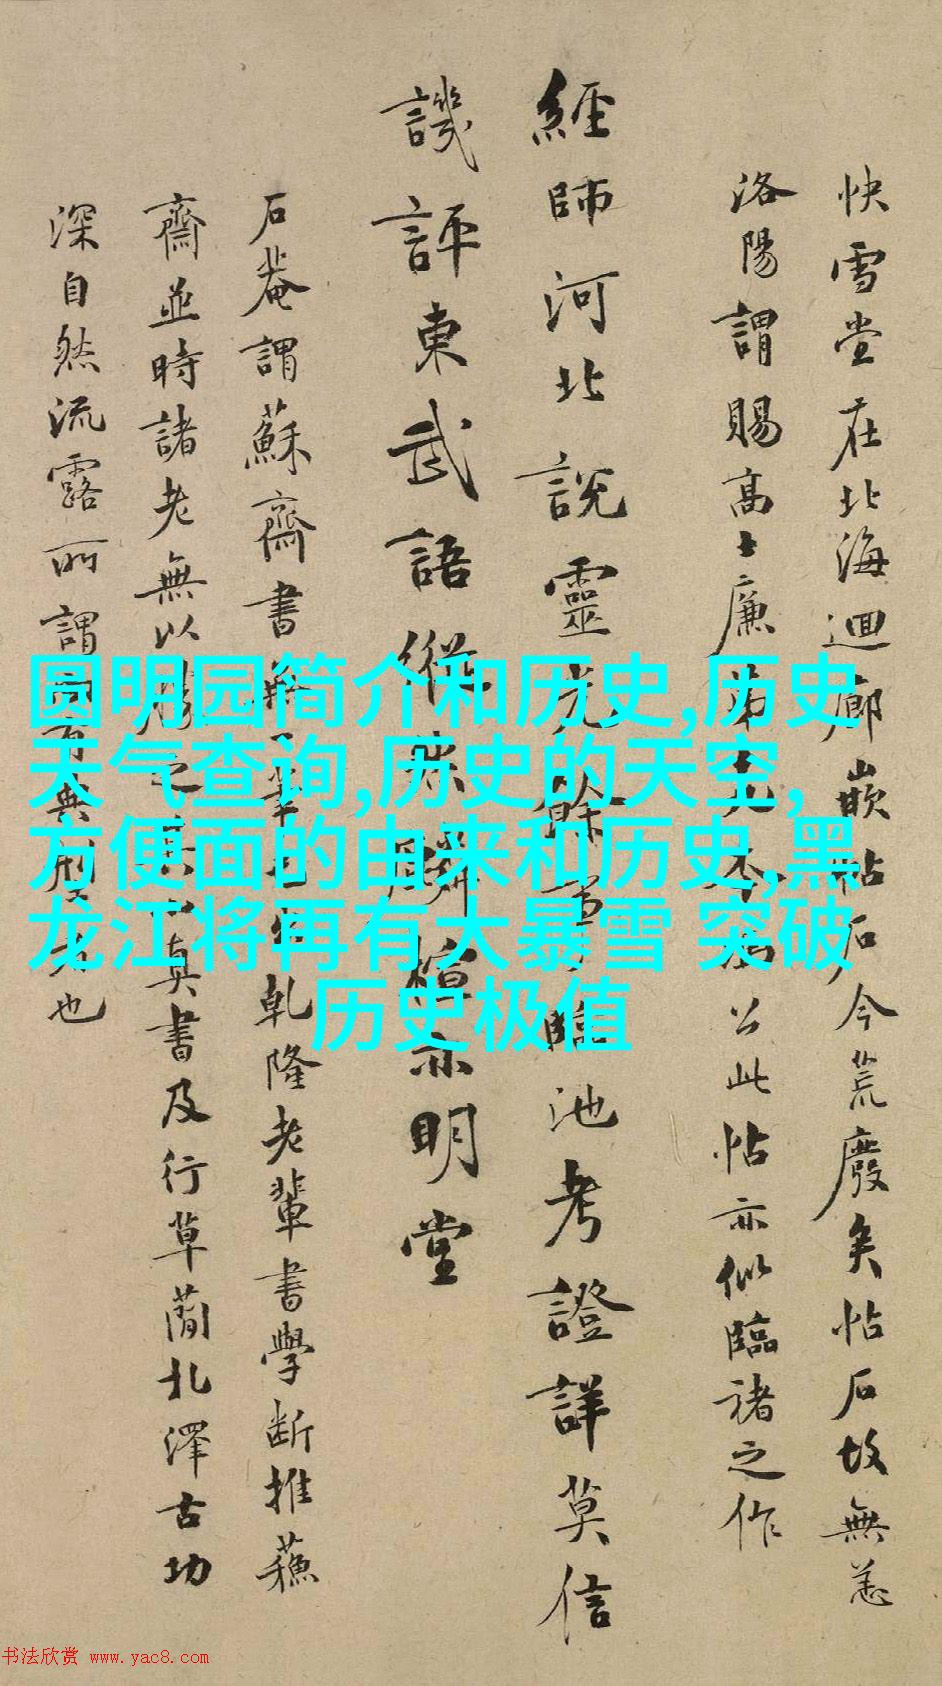 快雪堂在北海迴廊嵌帖石今荒廢矣帖石故無恙
洛陽謂賜高士廉弟
公此帖亦似臨諸之作
經師河北說靈光餘事
臨池考證詳莫信
譏評東武語縱
亦明堂
石菴謂蘇齋書無一筆
乾隆老輩書學斷推蘇
齋並時諸老無以
真書及行草蘭北澤古功
深自然流露所謂
也
圆明园简介和历史,历史
天气查询,历史的天空,
方便面的由来和历史,黑
龙江将再有大暴雪 突破
历史极值
书法欣赏 www.yac8.com